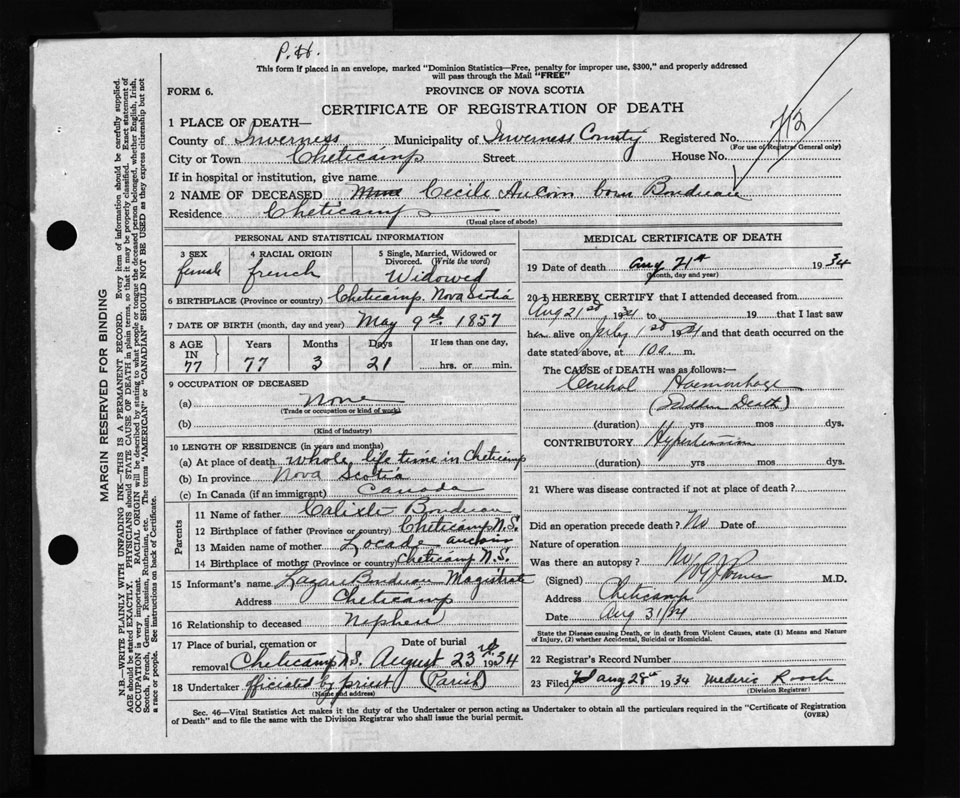 P.H.
This form if placed in an envelope, marked "Dominion Statistics—Free, penalty for improper use, $300," and properly addressed
will pass through the Mail "FREE"
FORM 6.
PROVINCE OF NOVA SCOTIA
CERTIFICATE OF REGISTRATION OF DEATH
1 PLACE OF DEATH—
County of Inverness Municipality of Inverness County Registered No. 712
(For use of Registrar General only)
City or Town Cheticamp Street House No.
If in hospital or institution, give name
2 NAME OF DECEASED Cecile AuCoin born Boudreau
Residence Cheticamp
(Usual place of abode)
PERSONAL AND STATISTICAL INFORMATION
3 SEX female
4 RACIAL ORIGIN french
5 Single, Married, Widowed or Divorced. (Write the word) Widowed
6 BIRTHPLACE (Province or country) Cheticamp. Nova Scotia
7 DATE OF BIRTH (month, day and year) May 9th. 1857
8 AGE IN 77 Years 77 Months 3 Days 21 If less than one day, hrs. or min.
9 OCCUPATION OF DECEASED
(a) None
(Trade or occupation or kind of work)
(b)
(Kind of industry)
10 LENGTH OF RESIDENCE (in years and months)
(a) At place of death whole life time in Cheticamp
(b) In province Nova Scotia
(c) In Canada (if an immigrant) Canada
Parents
11 Name of father Calixte Boudreau
12 Birthplace of father (Province or country) Cheticamp N.S.
13 Maiden name of mother Locade aucoin
14 Birthplace of mother (Province or country) Cheticamp N.S.
15 Informant's name Lazare Boudreau Magistrate
Address Cheticamp
16 Relationship to deceased Nephew
17 Place of burial, cremation or removal Cheticamp N.S. Date of burial August 23rd 1934
18 Undertaker officiated by priest (Parish)
(Name and address)
MEDICAL CERTIFICATE OF DEATH
19 Date of death Aug 21st 1934
(Month, day and year)
20 I HEREBY CERTIFY that I attended deceased from
Aug 21st, 1934 to 19 that I last saw
her alive on July 1st 1934 and that death occurred on the
date stated above, at 10 a. m.
The CAUSE of DEATH was as follows:—
Cerebral Haemorrhage
(Sudden Death)
(duration) yrs mos dys.
CONTRIBUTORY Hypertension
(duration) yrs mos dys.
21 Where was disease contracted if not at place of death?
Did an operation precede death? No Date of
Nature of operation
Was there an autopsy? No
(Signed) M.D.
Address Cheticamp
Date Aug 31/34
State the Disease causing Death, or in death from Violent Causes, state (1) Means and Nature
of Injury, (2) whether Accidental, Suicidal or Homicidal.
22 Registrar's Record Number
23 Filed Aug 28th 1934 Mederic Roach
(Division Registrar)
Sec. 46—Vital Statistics Act makes it the duty of the Undertaker or person acting as Undertaker to obtain all the particulars required in the "Certificate of Registration
of Death" and to file the same with the Division Registrar who shall issue the burial permit.
(OVER)
MARGIN RESERVED FOR BINDING
N.B.—WRITE PLAINLY WITH UNFADING INK—THIS IS A PERMANENT RECORD. Every item of information should be carefully supplied.
AGE should be stated EXACTLY. PHYSICIANS should STATE CAUSE OF DEATH in plain terms, so that it may be properly classified. Exact statement of
OCCUPATION is very important. RACIAL ORIGIN will be described by stating to what people or tongue the deceased person belonged, whether English, Irish,
Scotch, French, German, Russian, Ruthenian, etc. The terms "AMERICAN" or "CANADIAN" SHOULD NOT BE USED as they express citizenship but not
a race or people. See instructions on back of Certificate.